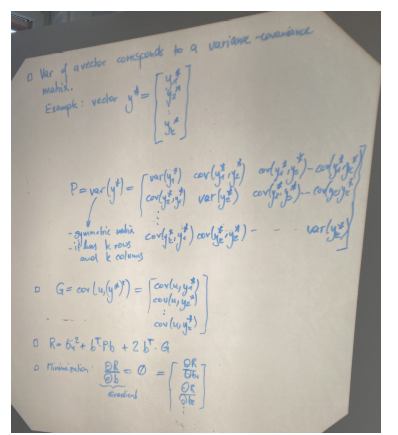 □ Var of a vector corresponds to a variance-covariance
matrix.
Example: vector y* = [y₁* y₂* ⋮ yₖ*]
P = var(y*) = [var(y₁*) cov(y₁*, y₂*) cov(y₁*, y₃*) – cov(y₁*, yₖ*)
cov(y₂*, y₁*) var(y₂*) cov(y₂*, y₃*) – – cov(y₂*, yₖ*)
⋮
cov(yₖ*, y₁*) cov(yₖ*, y₂*) – – – var(yₖ*)]
- symmetric matrix
- it has k rows
and k columns
□ G = cov(u, (y*)ᵀ) = [cov(u, y₁*)
cov(u, y₂*)
⋮
cov(u, yₖ*)]
□ R = σᵤ² + bᵀPb + 2bᵀ·G
□ Minimization: ∂R/∂b = 0 = [∂R/∂b₁ ∂R/∂b₂ ⋮]
gradient